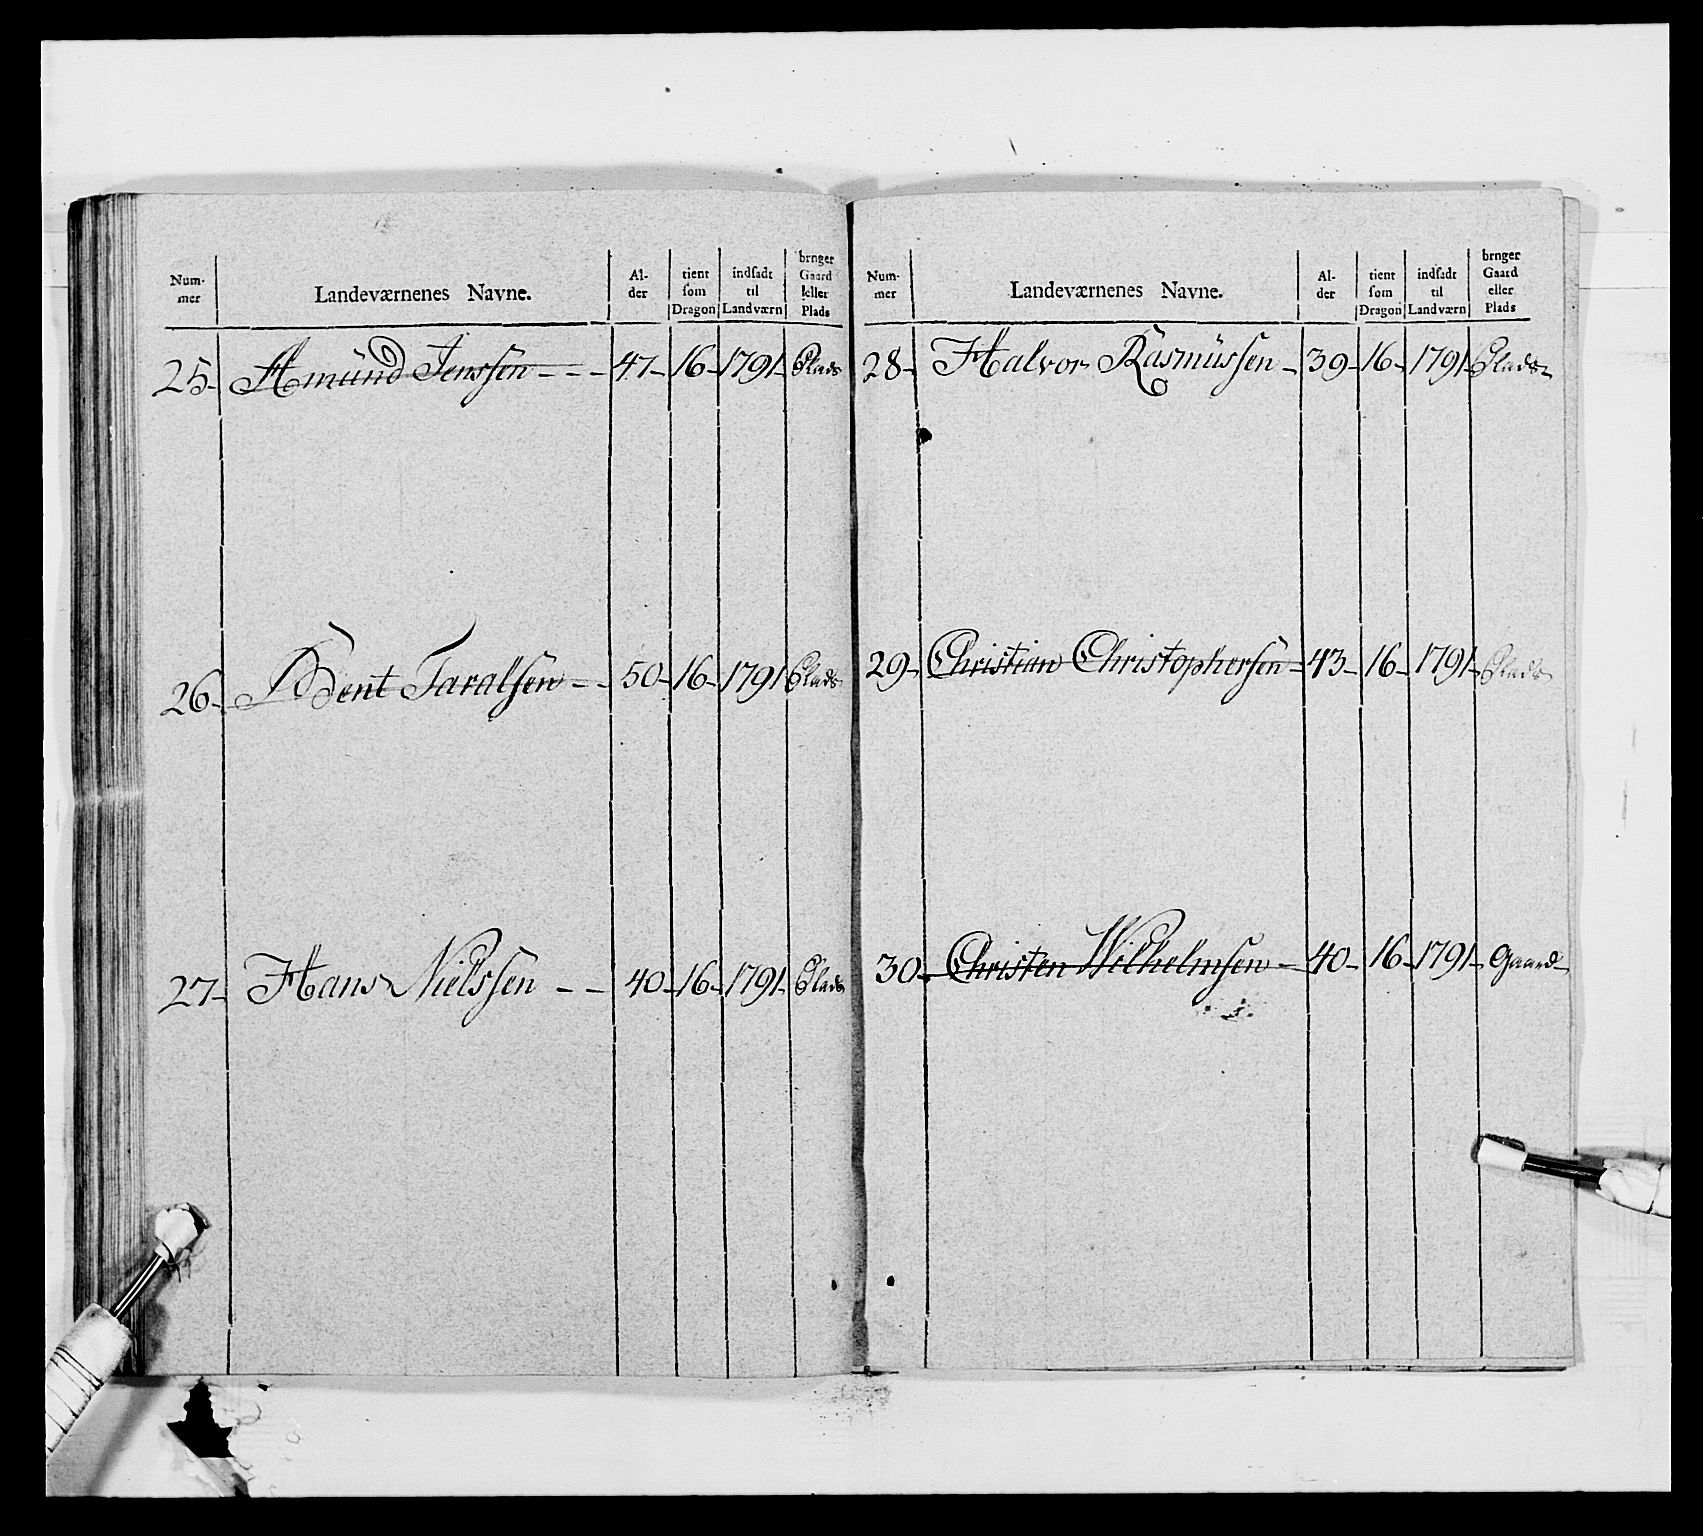 Num- mer | Landeværnenes Navne. | Al- der | tient som Dragon | indsadt til Landværn | brnger Gaard eller Plads
25 Amünd Jenssen - - - 47 - 16 - 1791 - Plads
26 - Bent Taralsen - - 50 - 16 - 1791 Plads
27 - Hans Nielssen - - 40 - 16 - 1791 - Plads
Num- mer | Landeværnenes Navne. | Al- der | tient som Dragon | indsadt til Landværn | brnger Gaard eller Plads
28 - Halvor Rasmüssen - 39 - 16 - 1791 - Plads -
29 - Christian Christophersen - 43 - 16 - 1791 - Plads
30 - Christen Wilhelmsen - 40 - 16 - 1791 - Gaard -